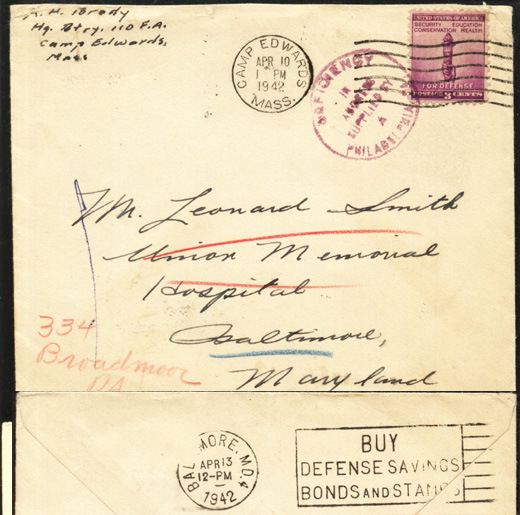 A. H. Brody
Hq. Btry. 110 F.A.
Camp Edwards,
Mass
CAMP EDWARDS
APR 10
1 PM
1942
MASS.
DEFICIENCY
IN
ADDRESS
SUPPLIED BY
A
PHILATELPHIA
UNITED STATES OF AMERICA
SECURITY EDUCATION
CONSERVATION HEALTH
FOR DEFENSE
POSTAGE 3 CENTS
Mr. Leonard Smith
Union Memorial
Hospital
Baltimore,
Maryland
334
Broadmoor
BALTIMORE, MD. 4
APR 13
12-PM
1942
BUY
DEFENSE SAVINGS
BONDS AND STAMPS